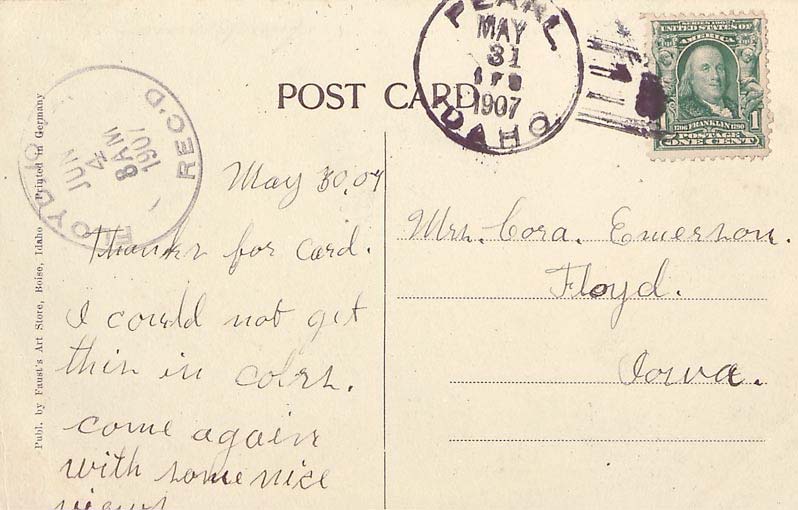 POST CARD
PEARL
MAY
31
1907
IDAHO
SERIES 1902
UNITED STATES OF
AMERICA
1706 FRANKLIN 1790
1 1
POSTAGE
ONE CENT
FLOYD IO
JUN
4
8AM
1907
REC'D
Publ. by Faust's Art Store, Boise, Idaho
Printed in Germany
May 30, 07
Thanks for card.
I could not get
this in colrs.
come again
with some nice
views
Mrs. Cora. Emerson.
Floyd.
Iowa.